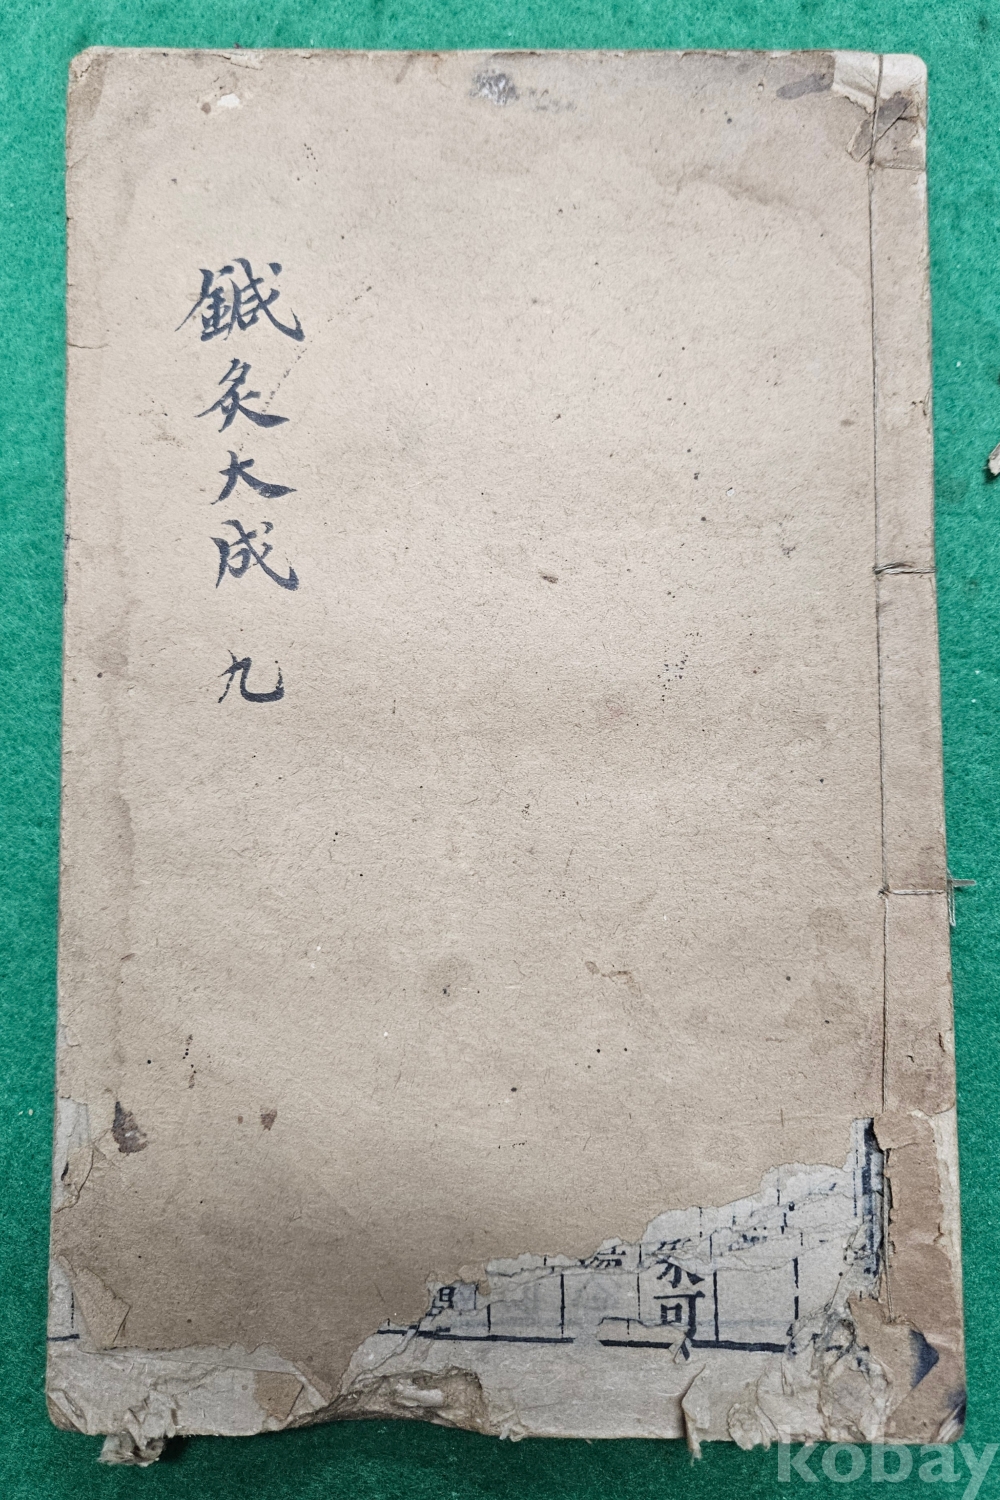 鍼灸大成 九
可
kobay